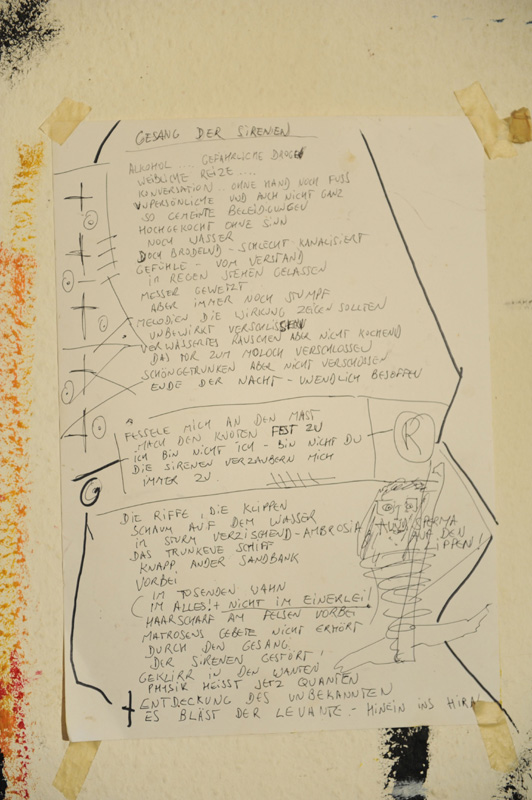 GESANG DER SIRENEN
ALKOHOL.... GEFÄHRLICHE DROGE
WEIBLICHE REIZE....
KONVERSATION.. OHNE HAND NOCH FUSS
UNPERSÖNLICHE UND AUCH NICHT GANZ
SO GEMEINTE BELEIDIGUNGEN
HOCHGEKOCHT OHNE SINN
NOCH WASSER
DOCH BRODELND - SCHLECHT KANALISIERT
GEFÜHLE - VOM VERSTAND
IM REGEN STEHEN GELASSEN
MESSER GEWETZT
ABER IMMER NOCH STUMPF
MELODIEN DIE WIRKUNG ZEIGEN SOLLTEN
UNBEWIRKT VERSCHLISSEN
VERWÄSSERTES RAUSCHEN ABER NICHT KOCHEND
DAS TOR ZUM MOLOCH VERSCHLOSSEN
SCHÖNGETRUNKEN ABER NICHT VERSCHOSSEN
ENDE DER NACHT - UNENDLICH BESOFFEN
FESSELE MICH AN DEN MAST
MACH DEN KNOTEN FEST ZU
ICH BIN NICHT ICH - BIN NICHT DU
DIE SIRENEN VERZAUBERN MICH
IMMER ZU
R
DIE RIFFE, DIE KLIPPEN
SCHAUM AUF DEM WASSER
IM STURM VERZISCHEND - AMBROSIA UND SPERMA
AUF DEN
LIPPEN!
DAS TRUNKENE SCHIFF
KNAPP AN DER SANDBANK
VORBEI
IM TOSENDEN WAHN
IM ALLES!+ NICHT IM EINERLEI!
HAARSCHARF AM FELSEN VORBEI
MATROSENS GEBETE NICHT ERHÖRT
DURCH DEN GESANG
DER SIRENEN GESTÖRT!
GEKLIRR IN DEN WANTEN
PHYSIK HEISST JETZ QUANTEN
ENTDECKUNG DES UNBEKANNTEN
ES BLÄST DER LEVANTE - HINEIN INS HIRN